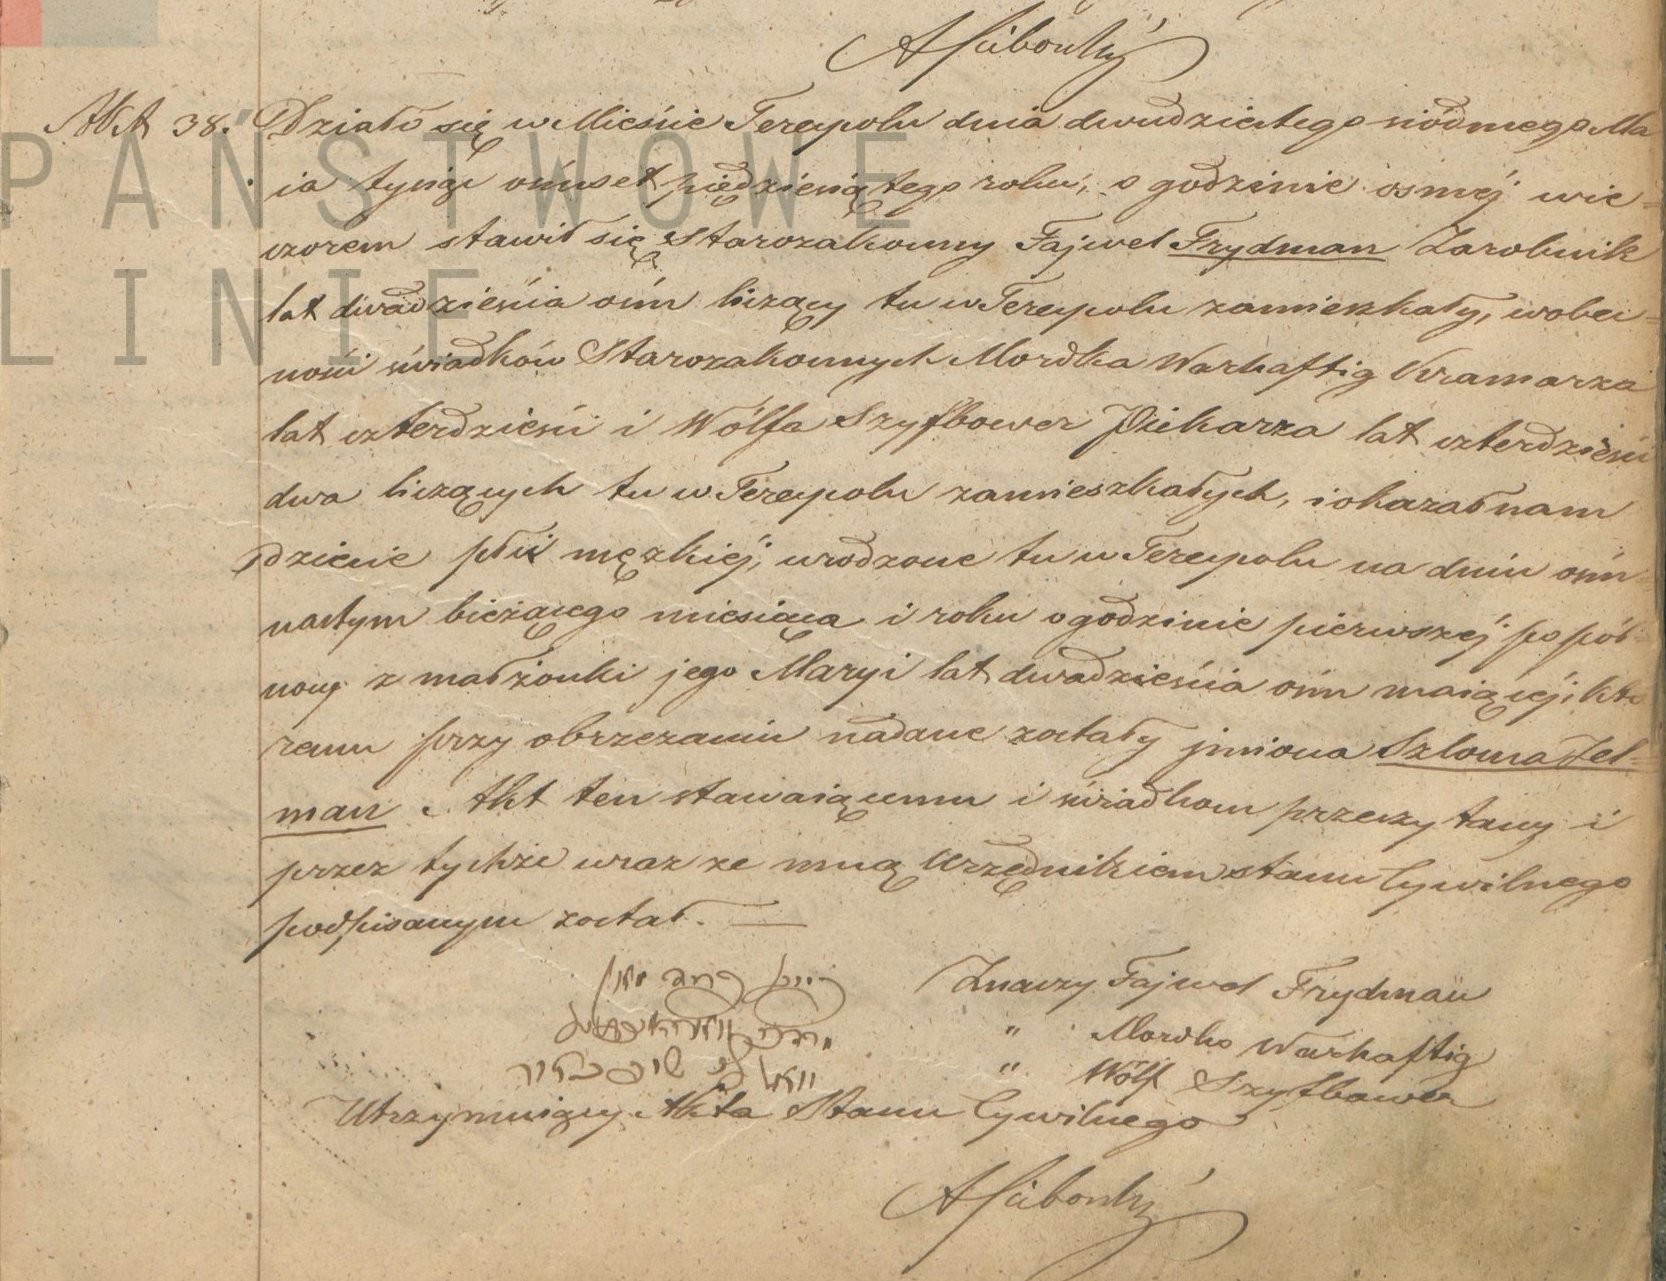 AŚciborski
Akt 38. Działo się w Mieście Terespolu dnia dwudziestego siódmego Ma
ia tysiąc ośmset piędziesiątego roku, o godzinie osméj wie=
czorem stawił się Starozakonny Fajwel Frydman Zarobnik
lat dwadzieścia ośm liczący tu w Terespolu zamieszkały, w obec=
ności świadków Starozakonnych Mordka Warhaftig Kramarza
lat czterdzieści i Wólfa Szyfbower Piekarza lat czterdzieści
dwa liczących tu w Terespolu zamieszkałych, i okazał nam
dziecie płci męzkiéj, urodzone tu w Terespolu na dniu ośm=
nastym bieżącego miesiąca i roku o godzinie pierwszéj po pół=
nocy z małżonki jego Maryi lat dwadzieścia ośm maiącéj; któ
remu przy obrzezaniu nadane zostały jmiona Szloma Zel=
man. Akt ten stawaiącemu i świadkom przeczytany i
przez tychże wraz ze mną Urzędnikiem stanu Cywilnego
podpisanym został.
Znaczy Fajwel Frydman
" Mordko Warhaftig
" Wólf Szyfbawer
Utrzymuiący Akta Stanu Cywilnego
AŚciborski
PAŃSTWOWE
LINIE